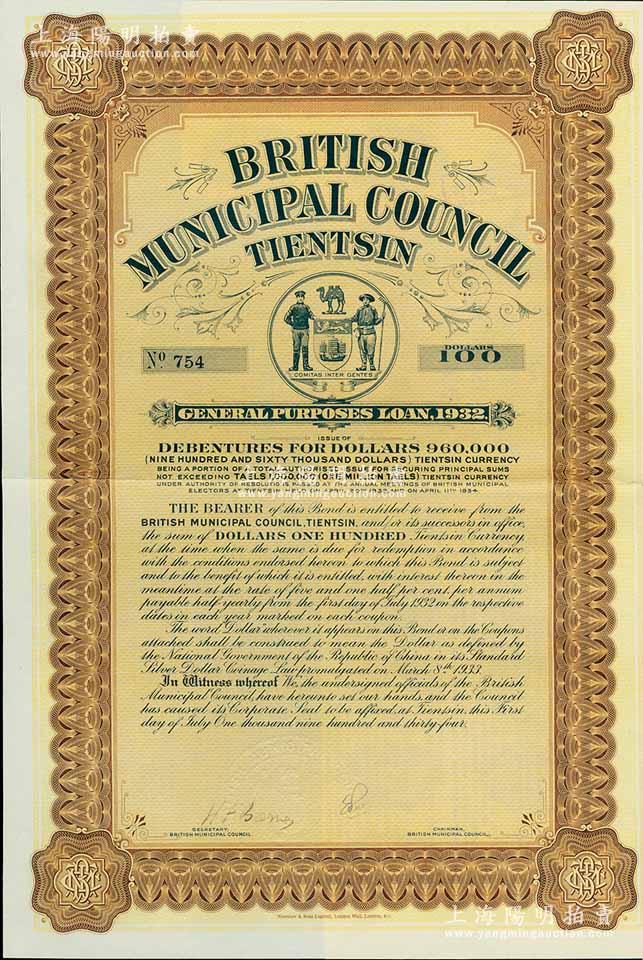 上海陽明拍賣
www.yangmingauction.com
BRITISH
MUNICIPAL COUNCIL
TIENTSIN
No. 754
DOLLARS
100
COMITAS INTER GENTES
GENERAL PURPOSES LOAN, 1932
ISSUE OF
DEBENTURES FOR DOLLARS 960,000
(NINE HUNDRED AND SIXTY THOUSAND DOLLARS) TIENTSIN CURRENCY
BEING A PORTION OF A TOTAL AUTHORISED ISSUE FOR SECURING PRINCIPAL SUMS
NOT EXCEEDING TAELS 1,000,000 (ONE MILLION TAELS) TIENTSIN CURRENCY
UNDER AUTHORITY OF RESOLUTIONS PASSED AT THE ANNUAL MEETINGS OF BRITISH MUNICIPAL
ELECTORS AT TIENTSIN HELD ON APRIL AND ON APRIL 11TH 1934.
THE BEARER of this Bond is entitled to receive from the
BRITISH MUNICIPAL COUNCIL, TIENTSIN, and/or its successors in office,
the sum of DOLLARS ONE HUNDRED Tientsin Currency,
at the time when the same is due for redemption in accordance
with the conditions endorsed hereon to which this Bond is subject
and to the benefit of which it is entitled, with interest thereon in the
meantime at the rate of five and one half per cent. per annum
payable half-yearly from the first day of July 1932 on the respective
dates in each year marked on each coupon.
The word "Dollar" wherever it appears on this Bond or on the Coupons
attached shall be construed to mean the Dollar as defined by
the National Government of the Republic of China in its Standard
Silver Dollar Coinage Law promulgated on March 8th 1933.
In Witness whereof We, the undersigned officials of the British
Municipal Council, have hereunto set our hands, and the Council
has caused its Corporate Seal to be affixed, at Tientsin, this First
day of July One thousand nine hundred and thirty-four.
SECRETARY,
BRITISH MUNICIPAL COUNCIL
CHAIRMAN,
BRITISH MUNICIPAL COUNCIL,
Waterlow & Sons Limited, London Wall, London, E.C.
上海陽明拍賣
www.yangmingauction.com